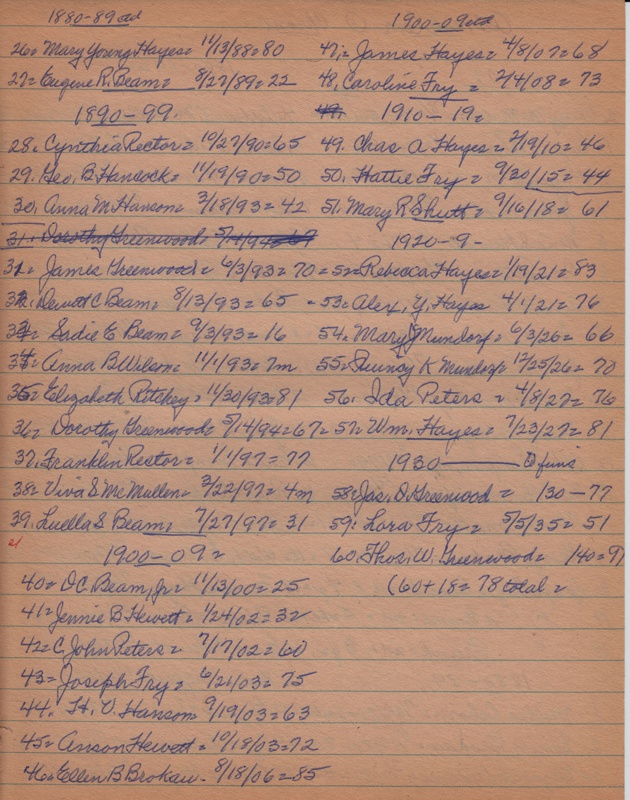 1880-89 ctd
26= Mary Young Hayes= 11/13/88=80
27= Eugene R. Beam= 8/27/89=22
1890-99.
28. Cynthia Rector= 10/27/90=65
29. Geo. B. Hancock= 11/19/90=50
30. Anna M. Hanson= 3/18/93=42
31. Dorothy Greenwood= 5/14/94=67
31= James Greenwood= 6/3/93=70=
32. Dewitt C Beam= 8/13/93=65
33= Sadie E Beam= 9/3/93=16
34= Anna B Wilson= 11/1/93=7m
35= Elizabeth Ritchey= 11/30/93=81
36= Dorothy Greenwood= 5/14/94=67=
37. Franklin Rector= 1/1/97=77
38= Viva S. McMullen= 3/22/97=4m
39. Luella S Beam= 7/27/97=31
21
1900-09=
40= D.C. Beam, Jr= 11/13/00=25
41= Jennie B Hewett= 1/24/02=32
42= C. John Peters= 7/17/02=60
43= Joseph Fry= 6/21/03=75
44. H. V. Hanson= 9/19/03=63
45= Anson Hewett= 10/18/03=72
46= Ellen B Brokaw- 8/18/06=85
1900-09 ctd
47,= James Hayes= 4/8/07=68
48, Caroline Fry= 2/4/08=73
49. 1910-19=
49. Chas A Hayes= 2/19/10=46
50. Hattie Fry= 9/30/15=44
51. Mary R Shutt= 9/16/18= 61
1920-9-
52= Rebecca Hayes= 1/19/21=83
53= Alex. Y. Hayes 4/1/21=76
54. Mary Mundorf= 6/3/26=66
55= Quincy K Mundorf= 12/25/26=70
56. Ida Peters= 4/8/27=76
57= Wm. Hayes= 7/23/27=81
1930——
58= Jas. D. Greenwood= 130-77
59= Lora Fry= 5/5/35=51
60. Thos. W. Greenwood= 140=91
(60+18=78 total=